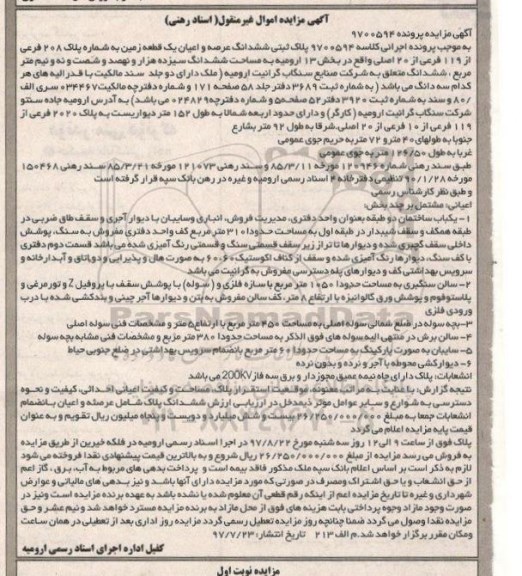 آگهی مزایده اموال غیرمنقول( اسناد رهنی)
آگهی مزایده پرونده ۹۷۰۰۵۹۴
به موجب پرونده اجرائی کلاسه ۹۷۰۰۵۹۴ پلاک ثبتی ششدانگ عرصه و اعیان یک قطعه زمین به شماره پلاک ۲۰۸ فرعی
از ۱۱۹ فرعی از ۲۰ اصلی واقع در بخش ۱۳ ارومیه به مساحت ششدانگ سیزده هزار و نهصد و شصت و نه و نیم متر
مربع ، ششدانگ متعلق به شرکت صنایع سنگاب گرانیت ارومیه ( ملک دارای دو جلد سند مالکیت با قدرالیه های هر
کدام سه دانگ می باشد ( به شماره ثبت ۳۶۸۹ دفتر جلد ۵۸ صفحه ۱۷۱ و شماره دفترچه مالکیت ۰۳۴۴۶۷ سری الف
/۸۰ و سند به شماره ثبت ۳۹۲۰ دفتر ۵۲ صفحه ۵ و شماره دفترچه ۰۲۴۸۲۹ می باشد) به آدرس ارومیه جاده سنتو
شرکت سنگاب گرانیت ارومیه ( کارگر) و دارای حدود اربعه شمالا به طول ۱۵۲ متر دیواریست به پلاک ۲۰۲۰ فرعی از
۱۱۹ فرعی از ۱۰ فرعی از ۲۰ اصلی.شرقا به طول ۹۲ متر بشارع
جنوبا به طولهای ۴۰ مترو ۷۲ متر به حریم جوی عمومی
غربا به طول ۱۲۶/۵۰ متر به جوی عمومی
طبق سند رهنی شماره ۱۲۰۹۴۶ مورخه ۸۵/۳/۱۱ و سند رهنی ۱۲۱۰۷۳ مورخه ۸۵/۳/۲۱ سند رهنی ۱۵۰۴۶۸
مورخه ۹۰/۱/۲۸ تنظیمی دفترخانه ۴ اسناد رسمی ارومیه و غیره در رهن بانک سپه قرار گرفته است
و طبق نظر کارشناس رسمی
اعیانی: مشتمل بر چند بخش:
۱ – یکباب ساختمان دو طبقه بعنوان واحد دفتری، مدیریت فروش، انباری وسایبان با دیوار آجری و سقف طاق ضربی در
طبقه همکف و سقف شیبدار در طبقه اول به مساحت حدودا ۳۱۰ متر مربع کف واحد دفتری مفروش به سنگ، پوشش
داخلی سقف گچبری شده و دیوارها تا تراز زیر سقف قسمتی سنگ و قسمتی رنگ آمیزی شده می باشد قسمت دوم دفتری
با کف سنگ، دیوارها رنگ آمیزی شده و سقف از کناف اکوستیک ۶۰*۶۰ به صورت هال و پذیرایی و دو اتاق و آبدارخانه و
سرویس بهداشتی کف و دیوارهای پله دسترسی مفروش به گرانیت می باشد
۲ – سالن سنگبری به مساحت حدودا ۱۰۵۰ متر مربع با سازه فلزی و ( سوله) با پوشش سقف با پروفیل Z و تورمرغی و
پلاستوفوم و پوشش ورق گالوانیزه با ارتفاع ۸ متر ، کف سالن مفروش به بتن و دیوارها آجر چینی و بندکشی شده با درب
ورودی فلزی
۳ – بچه سوله در ضلع شمالی سوله اصلی به مساحت ۴۵۰ متر مربع با ارتفاع ۵ متر و مشخصات فنی سوله اصلی
۴ – سالن برش در منتهی الیه سوله های فوق الذکر به مساحت حدودا ۳۸۰ متر مربع و مشخصات فنی مشابه بچه سوله
۵ – سایبان به صورت پارکینگ به مساحت حدودا ۶۰ متر مربع بانضمام سرویس بهداشتی در ضلع جنوبی حیاط
۶ – دیوارکشی محوطه با آجر و نرده و بدون نرده
انشعابات: پلاک دارای چاه نیمه عمیق مجوزدار و برق سه فاز 200KV می باشد
نتیجه گزارش: با عنایت به مراتب معنونه، موقعیت استقرار پلاک، مساحت و کیفیت اعیانی احداثی، کیفیت و نحوه
دسترسی به شوارع و سایر عوامل موثر ذیمدخل در ارزیابی ارزش ششدانگ پلاک شامل عرصه و اعیان بانضمام
انشعابات جمعا به مبلغ ۲۶/۲۵۰/۰۰۰/۰۰۰ بیست و شش میلیارد و دویست و پنجاه میلیون ریال تقویم و به عنوان
قیمت پایه مزایده اعلام می گردد
پلاک فوق از ساعت ۹ الی ۱۲ روز سه شنبه مورخ ۹۷/۸/۲۲ در اجرا اسناد رسمی ارومیه در فلکه خیرین از طریق مزایده
به فروش می رسد مزایده از مبلغ ۲۶/۲۵۰/۰۰۰/۰۰۰ ریال شروع و به بالاترین قیمت پیشنهادی نقدا فروخته می شود
لازم به ذکر است بر اساس اعلام بانک سپه ملک مذکور فاقد بیمه است و پرداخت بدهی های مربوط به آب، برق ، گاز اعم
از حق انشعاب و یا حق اشتراک ومصرف در صورتی که مورد مزایده دارای آنها باشد و نیز بدهی های مالیاتی و عوارض
شهرداری و غیره تا تاریخ مزایده اعم از اینکه رقم قطعی آن معلوم شده یا نشده باشد به عهده برنده مزایده است ونیز در
صورت وجود مازاد وجوه پرداختی بابت هزینه های فوق از محل مازاد به برنده مزایده مسترد خواهد شد ونیم عشر و حق
مزایده نقدا وصول می گردد ضمنا چنانچه روز مزایده تعطیل رسمی گردد مزایده روز اداری بعد از تعطیلی در همان ساعت
ومکان مقرر برگزار خواهد شد.م الف ۲۱۳ تاریخ انتشار: ۹۷/۷/۲۳
کفیل اداره اجرای اسناد رسمی ارومیه
مزایده نوبت اول
ParsNamadData